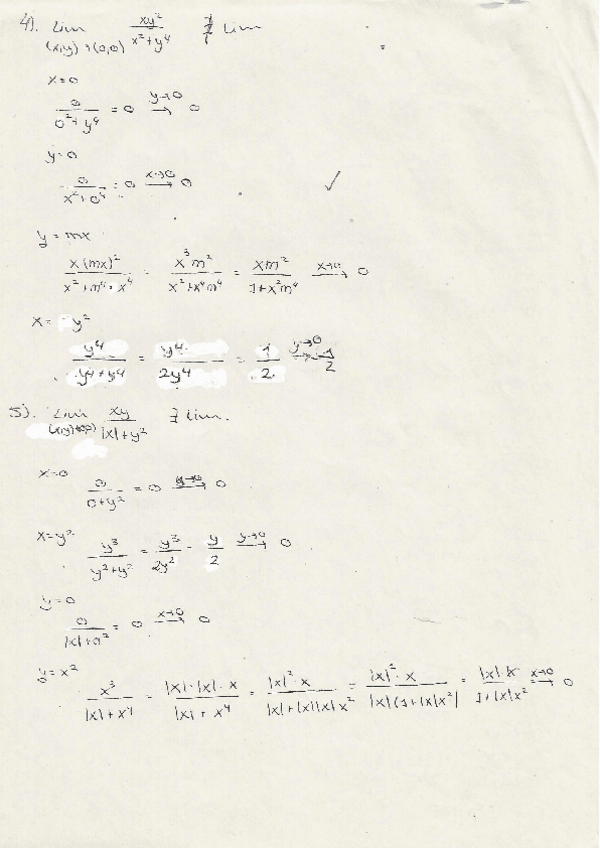 4). Lim xy²/(x²+y⁴) ∄ Lim
(x,y)→(0,0)
x=0
0/(0²+y⁴) = 0 →(y→0) 0
y=0
0/(x²+0⁴) = 0 →(x→0) 0 ✓
y = mx
x(mx)²/(x²+m⁴·x⁴) = x³m²/(x²+x⁴m⁴) = xm²/(1+x²m⁴) →(x→0) 0
x = y²
y⁴/(y⁴+y⁴) = y⁴/2y⁴ = 1/2 →(y→0) 1/2
5). Lim xy/(|x|+y²) ∃ Lim.
(x,y)→(0,0)
x=0
0/(0+y²) = 0 →(y→0) 0
x=y²
y³/(y²+y²) = y³/2y² = y/2 →(y→0) 0
y=0
0/(|x|+0²) = 0 →(x→0) 0
y=x²
x³/(|x|+x⁴) = |x|·|x|·x/(|x|+x⁴) = |x|²·x/(|x|+|x||x|x²) = |x|²·x/(|x|(1+|x|x²)) = |x|·x/(1+|x|x²) →(x→0) 0